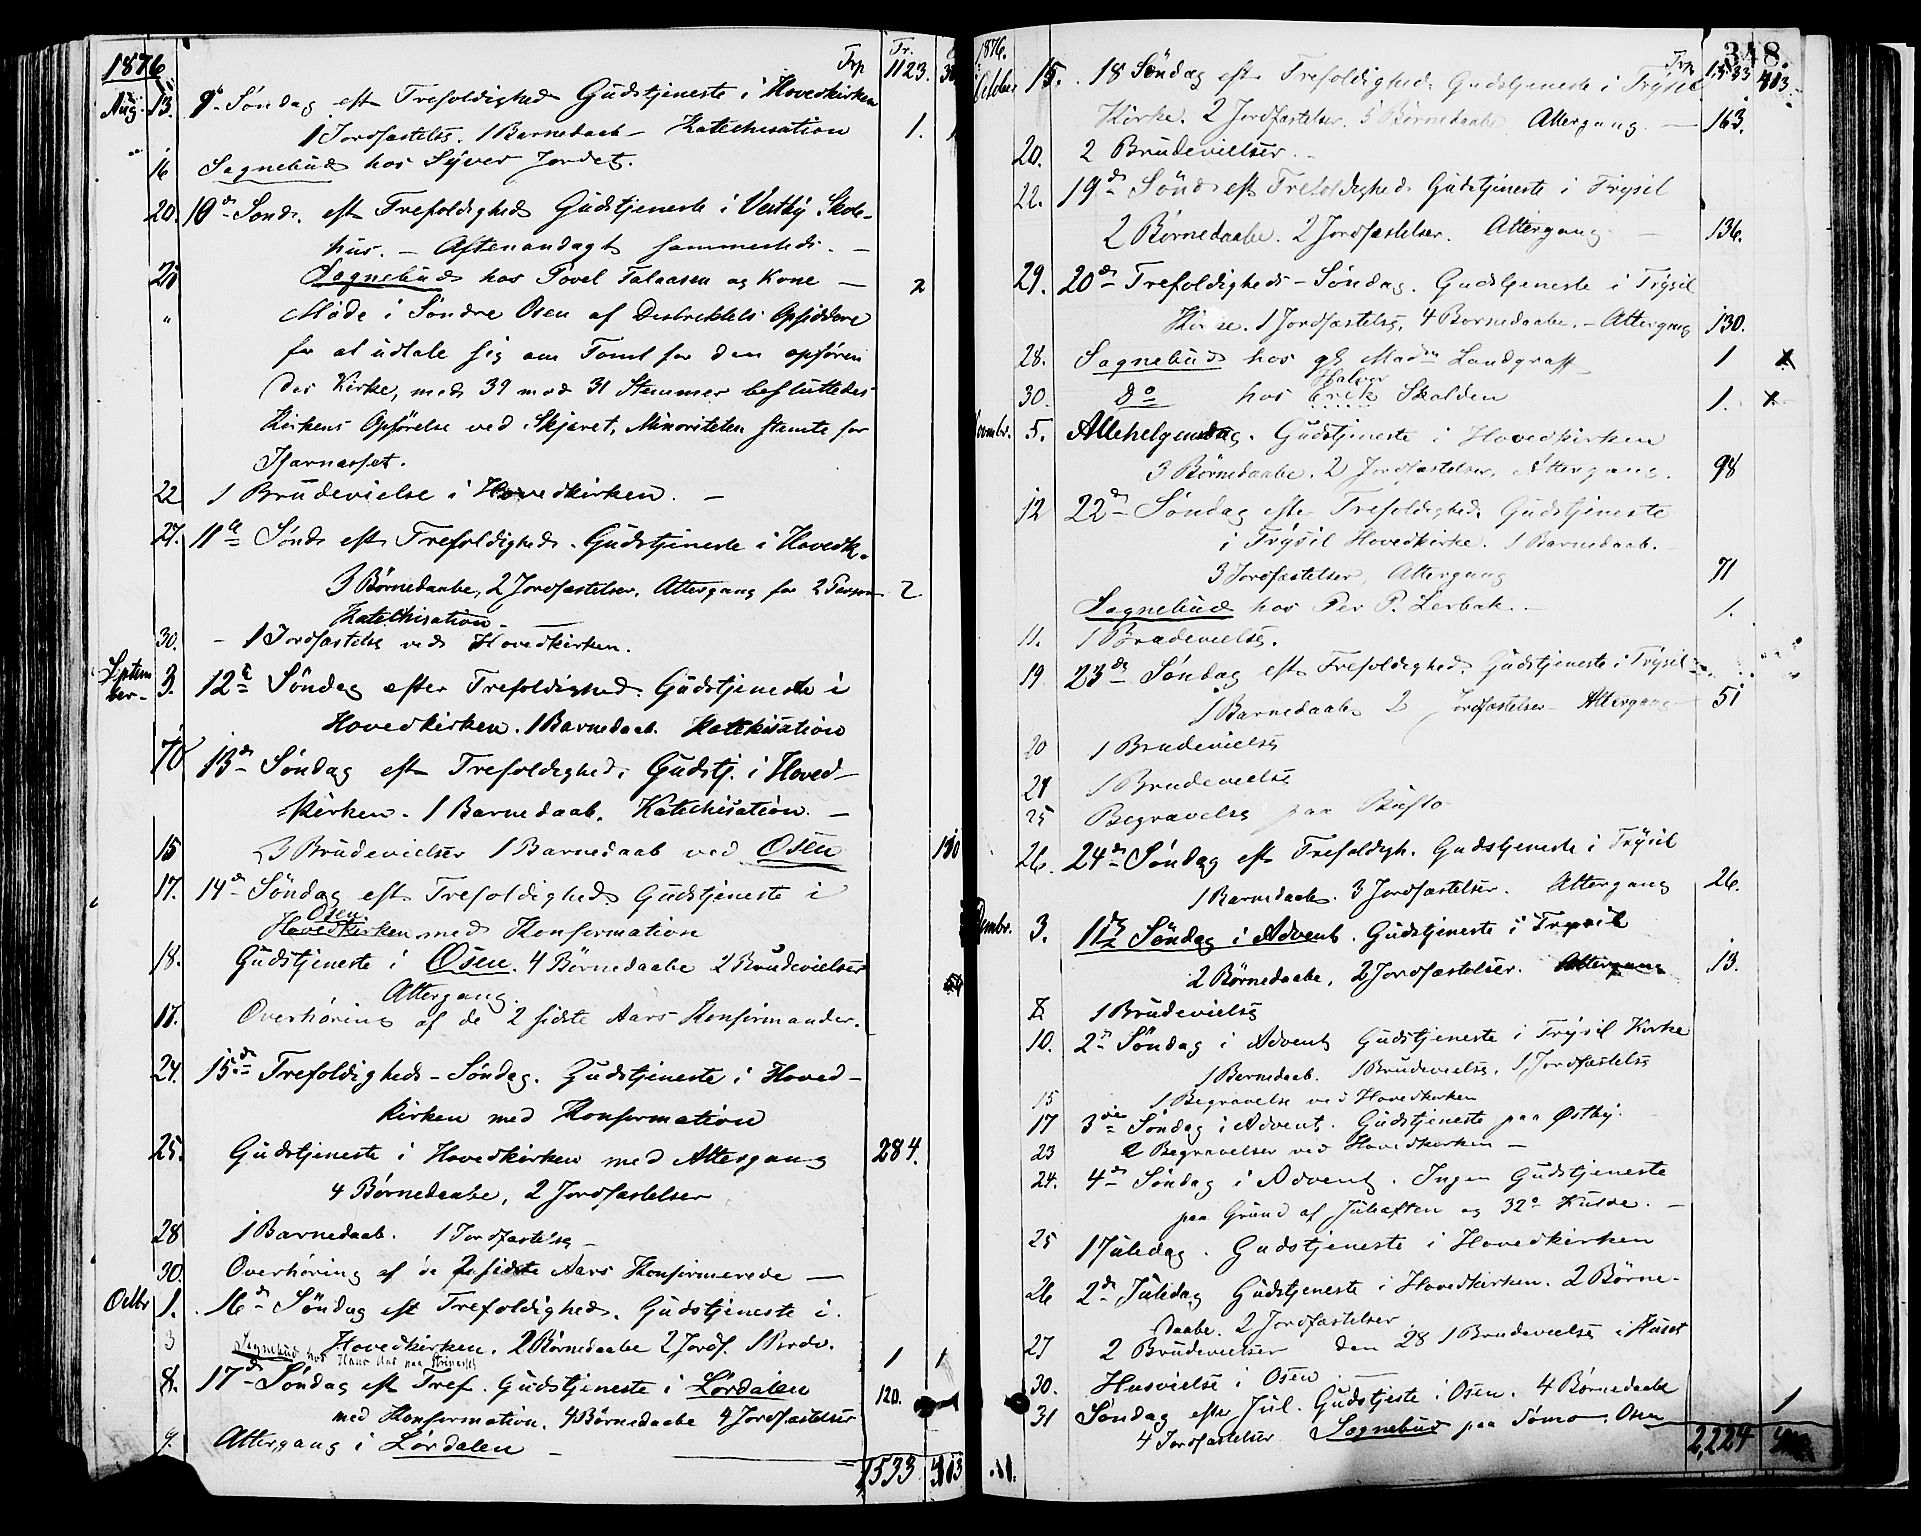 1876
Trp Tr. 1123. 30
Aug. 13. 9de Søndag eft Trefoldighed Gudstjeneste i Hovedkirken
1 Jordfæstelse. 1 Barnedaab – Katechisation 1.
16 Sognebud hos Syver Jordet.
20. 10de Sønd. eft Trefoldighed Gudstjeneste i Vestby Skole-
hus. – Aftenandagt sammesteds. –
Sognebud hos Povel Talaasen og Kone – 2
" Møde i Søndre Osen af Destriktets Opsiddere
for at udtale sig om Tomt for den opføren
des Kirke, med 39 mod 31 Stemmer besluttedes
Kirkens Opførelse ved Skjæret, Minoriteten stemte for
22 1 Brudevielse i Hovedkirken. –
27. 11te Sønd eft Trefoldighed. Gudstjeneste i Hovedk.
3 Børnedaabe, 2 Jordfæstelser, Altergang for 2 Person 2
Katechisation –
30. – 1 Jordfæstelse ved Hovedkirken.
Septem
ber – 3. 12te Søndag efter Trefoldighed. Gudstjeneste i
Hovedkirken. 1 Barnedaab. Katekisation
10 13de Søndag eft Trefoldighed. Gudstj. i Hoved-
kirken. 1 Barnedaab. Katechisation. –
15 3 Brudevielser 1 Barnedaab ved Osen 130
17. 14de Søndag eft Trefoldighed Gudstjeneste i
Osen
Hovedkirken med Konfirmation
18. Gudstjeneste i Osen. 4 Børnedaabe 2 Brudevielser
Altergang.
17. Overhøring af de 2 sidste Aars Konfirmander.
24. 15de Trefoldigheds-Søndag. Gudstjeneste i Hoved-
kirken med Konfirmation
25. Gudstjeneste i Hovedkirken med Altergang 284.
4 Børnedaabe, 2 Jordfæstelser
28 1 Barnedaab. 1 Jordfæstelse –
30. Overhøring af de 2 sidste Aars Konfirmerede –
Octbr 1. 16de Søndag eft Trefoldighed. Gudstjeneste i
Hovedkirken. 2 Børnedaabe 2 Jordf. 1 Brudv.
3 Sognebud hos 1 1
8. 17de Søndag eft Tref. Gudstjeneste i Lørdalen 120.
med Konfirmation. 4 Børnedaabe 4 Jordfæstelser
9. Altergang i Lørdalen –
1533 413
348.
1876.
October 15. 18 Søndag eft Trefoldighed Gudstjeneste i Trysil Trp 1533 413
Kirke. 2 Jordfæstelser. 5 Børnedaabe Altergang. – 163.
20. 2 Brudevielser.
22. 19de Sønd eft Trefoldighed Gudstjeneste i Trysil
2 Børnedaabe. 2 Jordfæstelser. Altergang – 136.
29. 20de Trefoldigheds-Søndag. Gudstjeneste i Trysil
Kirke. 1 Jordfæstelse. 4 Børnedaabe. – Altergang 130.
28. Sognebud hos gl Madm Landgraff 1 x
Halvor
30. do hos Erik Skalden 1. x
Novmbr. 5. Allehelgensdag. Gudstjeneste i Hovedkirken
3 Børnedaabe. 2 Jordfæstelser. Altergang. 98
12 22de Søndag efter Trefoldighed. Gudstjeneste
i Trysil Hovedkirke. 1 Barnedaab.
3 Jordfæstelser, Altergang 71
Sognebud hos Per P. Lerbak. – 1.
11. 1 Brudevielse.
19 23de Søndag eft Trefoldighed. Gudstjeneste i Trysil
1 Barnedaab 2 Jordfæstelser – Altergang – 51
20 1 Brudevielse
1 Brudevielse
25 Begravelse paa
26. 24de Søndag eft Trefoldigh. Gudstjeneste i Trysil
1 Barnedaab. 3 Jordfæstelser. Altergang 26.
Dembr. 3. 1ste Søndag i Advent. Gudstjeneste i Trysil
2 Børnedaabe, 2 Jordfæstelser. Altergang 13.
1 Brudevielse
10. 2de Søndag i Advent Gudstjeneste i Trysil Kirke
1 Barnedaab. 1 Brudevielse, 1 Jordfæstelse
15 1 Begravelse ved Hovedkirken
17 3die Søndag i Advent. Gudstjeneste paa Østby.
23 2 Begravelser ved Hovedkirken –
24. 4de Søndag i Advent. Ingen Gudstjeneste
paa Grund af Juleaften og 32° Kulde. –
25 1 Juledag. Gudstjeneste i Hovedkirken
26 2de Juledag Gudstjeneste i Hovedkirken. 2 Børne-
daabe. 2 Jordfæstelser
27 2 Brudevielser den 28 1 Brudevielse i Huset
30. Husvielse i Osen –
31 Søndag efter Jul. Gudstjeste i Osen. 4 Børnedaabe
4 Jordfæstelser Sognebud paa Tømo, Osen 1
2,224